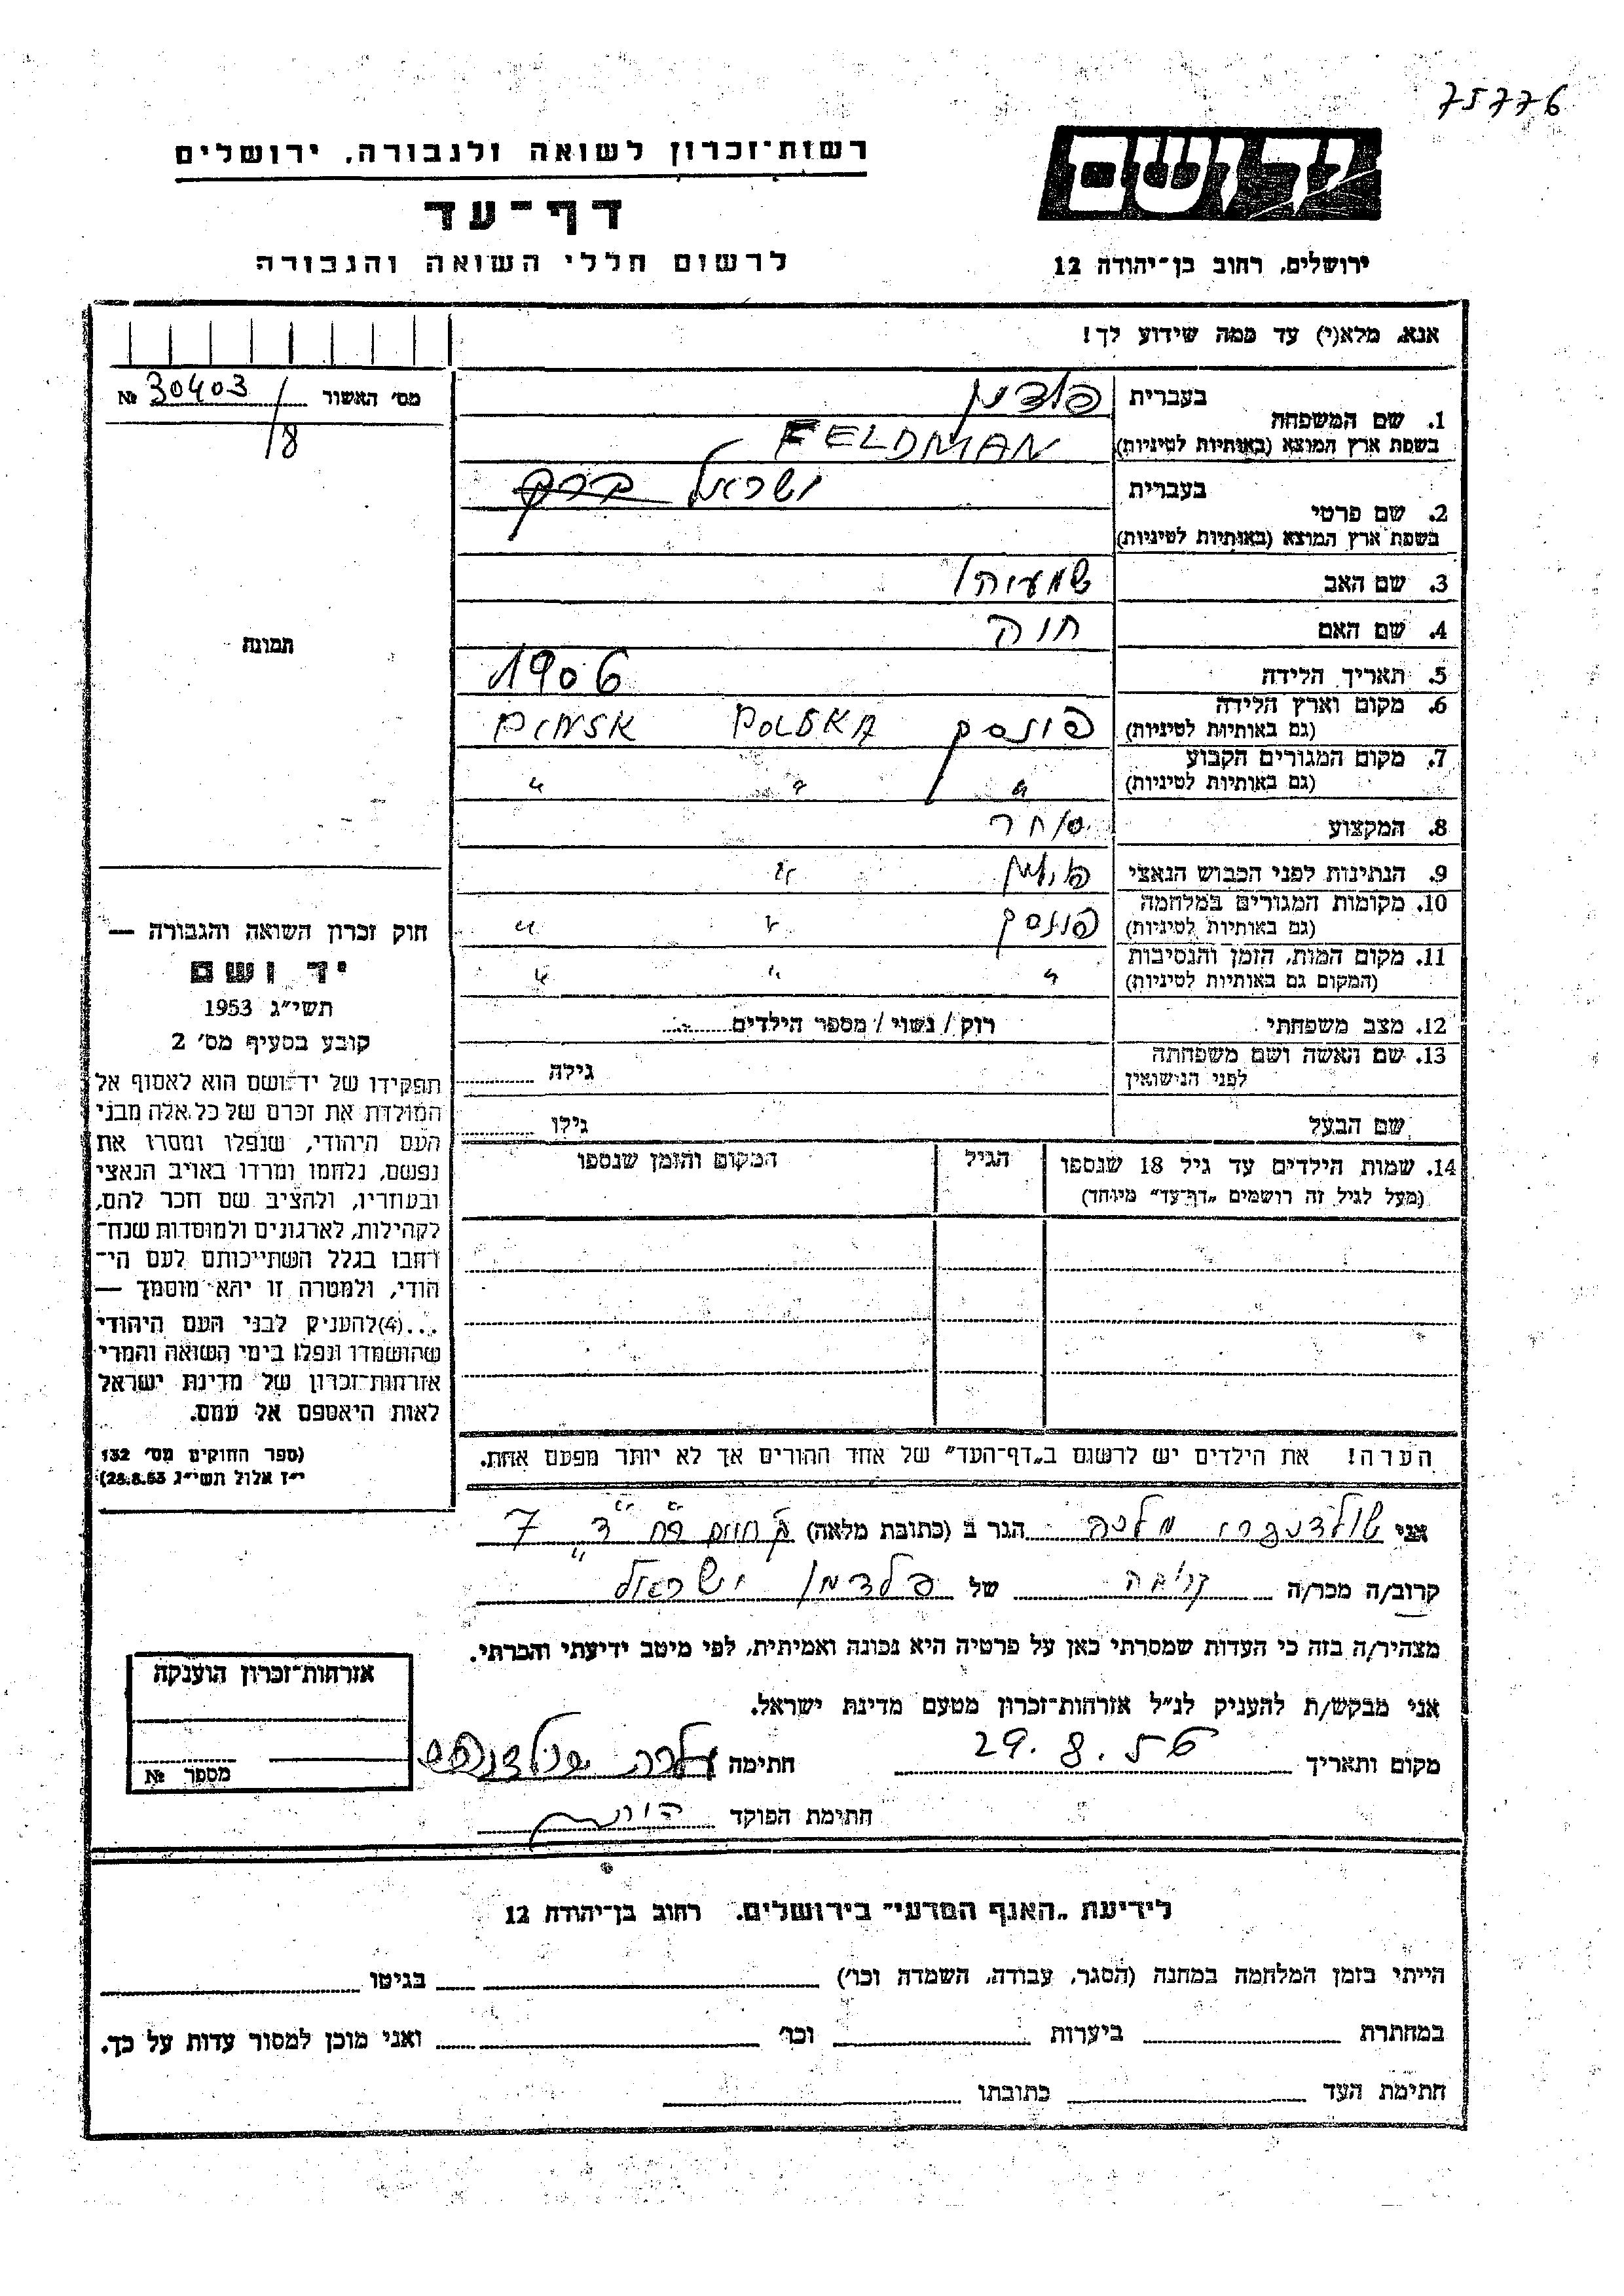 75776
רשות־זכרון לשואה ולגבורה, ירושלים
יד ושם
דף־עד
לרשום חללי השואה והגבורה
ירושלים, רחוב בן־יהודה 12
אנא, מלא(י) עד כמה שידוע לך!
מס׳ האשור 30403 №
/8
1. שם המשפחה
בעברית פלדמן
בשפת ארץ המוצא (באותיות לטיניות) FELDMAN
2. שם פרטי
בעברית ישראל ברק
בשפת ארץ המוצא (באותיות לטיניות)
3. שם האב שמעיהו
4. שם האם חוה
5. תאריך הלידה 1906
6. מקום וארץ הלידה פינסק POLSKA PINSK
(גם באותיות לטיניות)
7. מקום המגורים הקבוע " " "
(גם באותיות לטיניות)
8. המקצוע סוחר
9. הנתינות לפני הכבוש הנאצי פולין "
10. מקומות המגורים במלחמה פינסק " "
(גם באותיות לטיניות)
11. מקום המות, הזמן והנסיבות " " "
(המקום גם באותיות לטיניות)
12. מצב משפחתי רוק / נשוי / מספר הילדים
13. שם האשה ושם משפחתה
לפני הנישואין גילה
שם הבעל גילו
14. שמות הילדים עד גיל 18 שנספו
(מעל לגיל זה רושמים „דף־עד״ מיוחד)
הגיל
המקום והזמן שנספו
הערה! את הילדים יש לרשום ב„דף־העד״ של אחד ההורים אך לא יותר מפעם אחת.
תמונה
חוק זכרון השואה והגבורה —
יד ושם
תשי״ג 1953
קובע בסעיף מס׳ 2
תפקידו של יד־ושם הוא לאסוף אל
המולדת את זכרם של כל אלה מבני
העם היהודי, שנפלו ומסרו את
נפשם, נלחמו ומרדו באויב הנאצי
ובעוזריו, ולהציב שם וזכר להם,
לקהילות, לארגונים ולמוסדות שנח־
רבו בגלל השתייכותם לעם הי־
הודי, ולמטרה זו יהא מוסמך —
...(4) להעניק לבני העם היהודי
שהושמדו ונפלו בימי השואה והמרי
אזרחות־זכרון של מדינת ישראל
לאות היאספם אל עמם.
(ספר החוקים מס׳ 132
י״ז אלול תשי״ג 28.8.53)
אני מלכה הגר ב (כתובת מלאה) 7
קרוב/ה מכר/ה של פלדמן ישראל
מצהיר/ה בזה כי העדות שמסרתי כאן על פרטיה היא נכונה ואמיתית, לפי מיטב ידיעתי והכרתי.
אני מבקש/ת להעניק לנ״ל אזרחות־זכרון מטעם מדינת ישראל.
מקום ותאריך 29.8.56 חתימה
חתימת הפוקד
אזרחות־זכרון הוענקה
מספר №
לידיעת „האגף המדעי״ בירושלים, רחוב בן־יהודה 12
הייתי בזמן המלחמה במחנה (הסגר, עבודה, השמדה וכו׳) בגיטו
במחתרת ביערות וכו׳ ואני מוכן למסור עדות על כך.
חתימת העד כתובתו